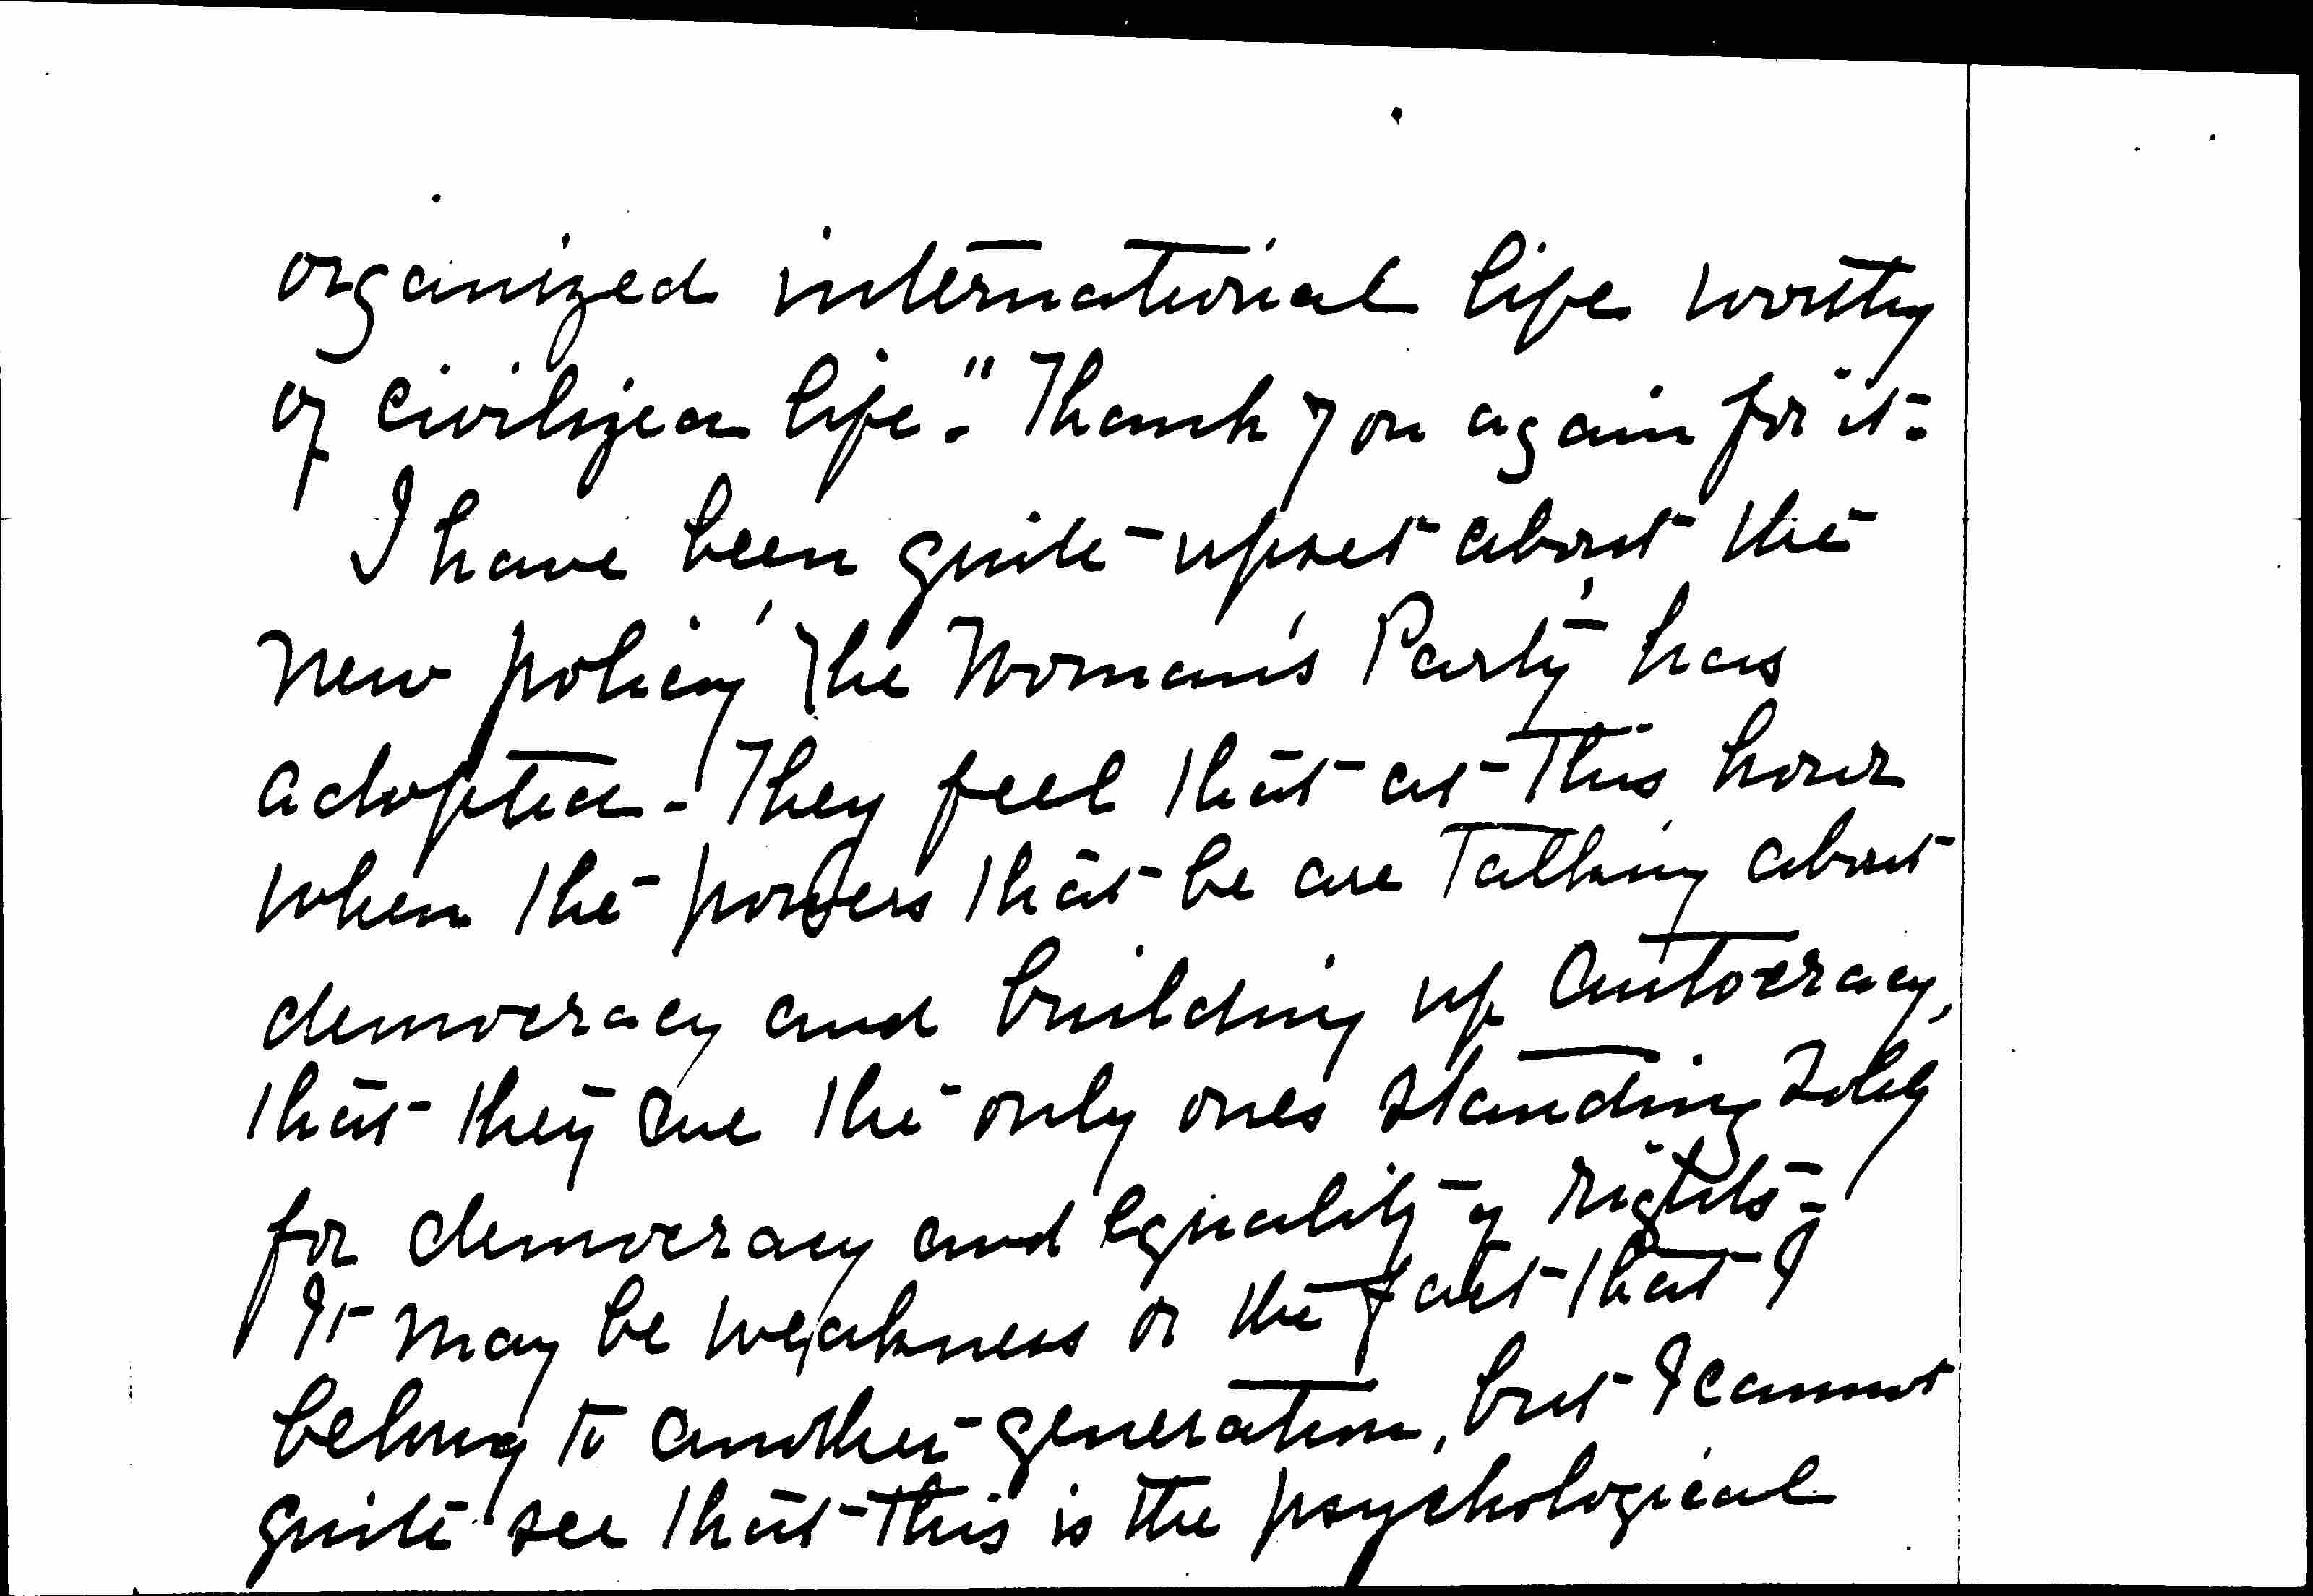 organized international life worthy
of civilized life." Thank you again for it -
I have been quite upset about the
new policy the Woman's Party has
adopted - They feel that at this hour
when the powers that be are talking about
democracy and building up autocracy,
that they are the only ones standing
for democracy and equality of rights -
It may be weakness or the fact that I
belong to another generation, but I cannot
quite see that this is the psychological